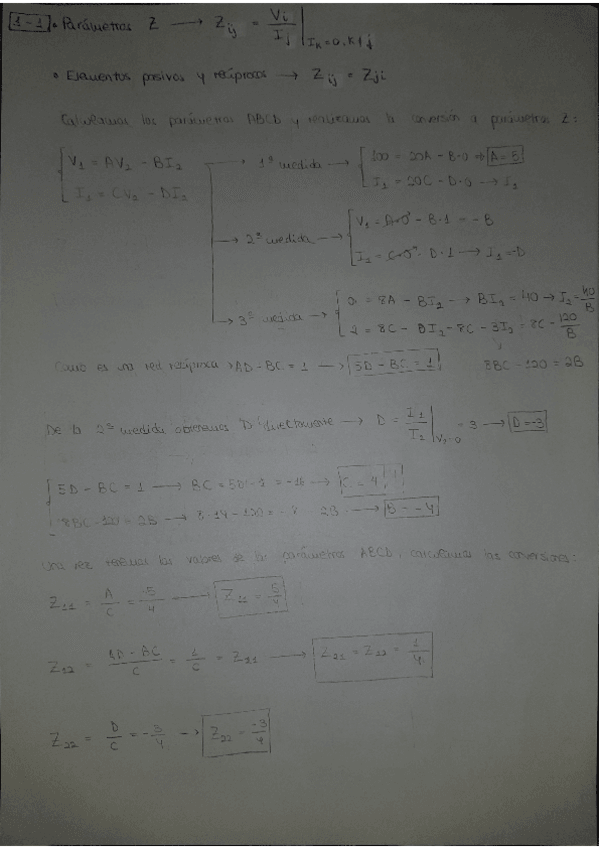 1-1 • Parámetros Z → Zij = Vi / Ij | IK = 0, K ≠ j
• Elementos pasivos y recíprocos → Zij = Zji
Calculamos los parámetros ABCD y realizamos la conversión a parámetros Z:
V1 = AV2 - BI2
I1 = CV2 - DI2
→ 1ª medida → 100 = 20A - B·0 ⇒ A = 5
I1 = 20C - D·0 → I1
→ 2ª medida → V1 = A·0 - B·1 = -B
I1 = C·0 - D·1 → I1 = -D
→ 3ª medida → 0 = 8A - BI2 → BI2 = 40 → I2 = 40/B
2 = 8C - DI2 = 8C - 3I2 = 8C - 120/B
Como es una red recíproca → AD - BC = 1 → 5D - BC = 1 8BC - 120 = 2B
De la 2ª medida obtenemos "D" directamente → D = I1 / I2 | = 3 → D = -3
5D - BC = 1 → BC = 5D - 1 = -16 →
8BC - 120 = 2B → 2B → B = -4
Una vez los valores de los parámetros ABCD, calculamos las conversiones:
Z11 = A/C = 5/4 → Z11 = 5/4
Z12 = AD - BC / C = 1/C = Z21 → Z21 = Z12 = 1/4
Z22 = D/C = -3/4 → Z22 = -3/4